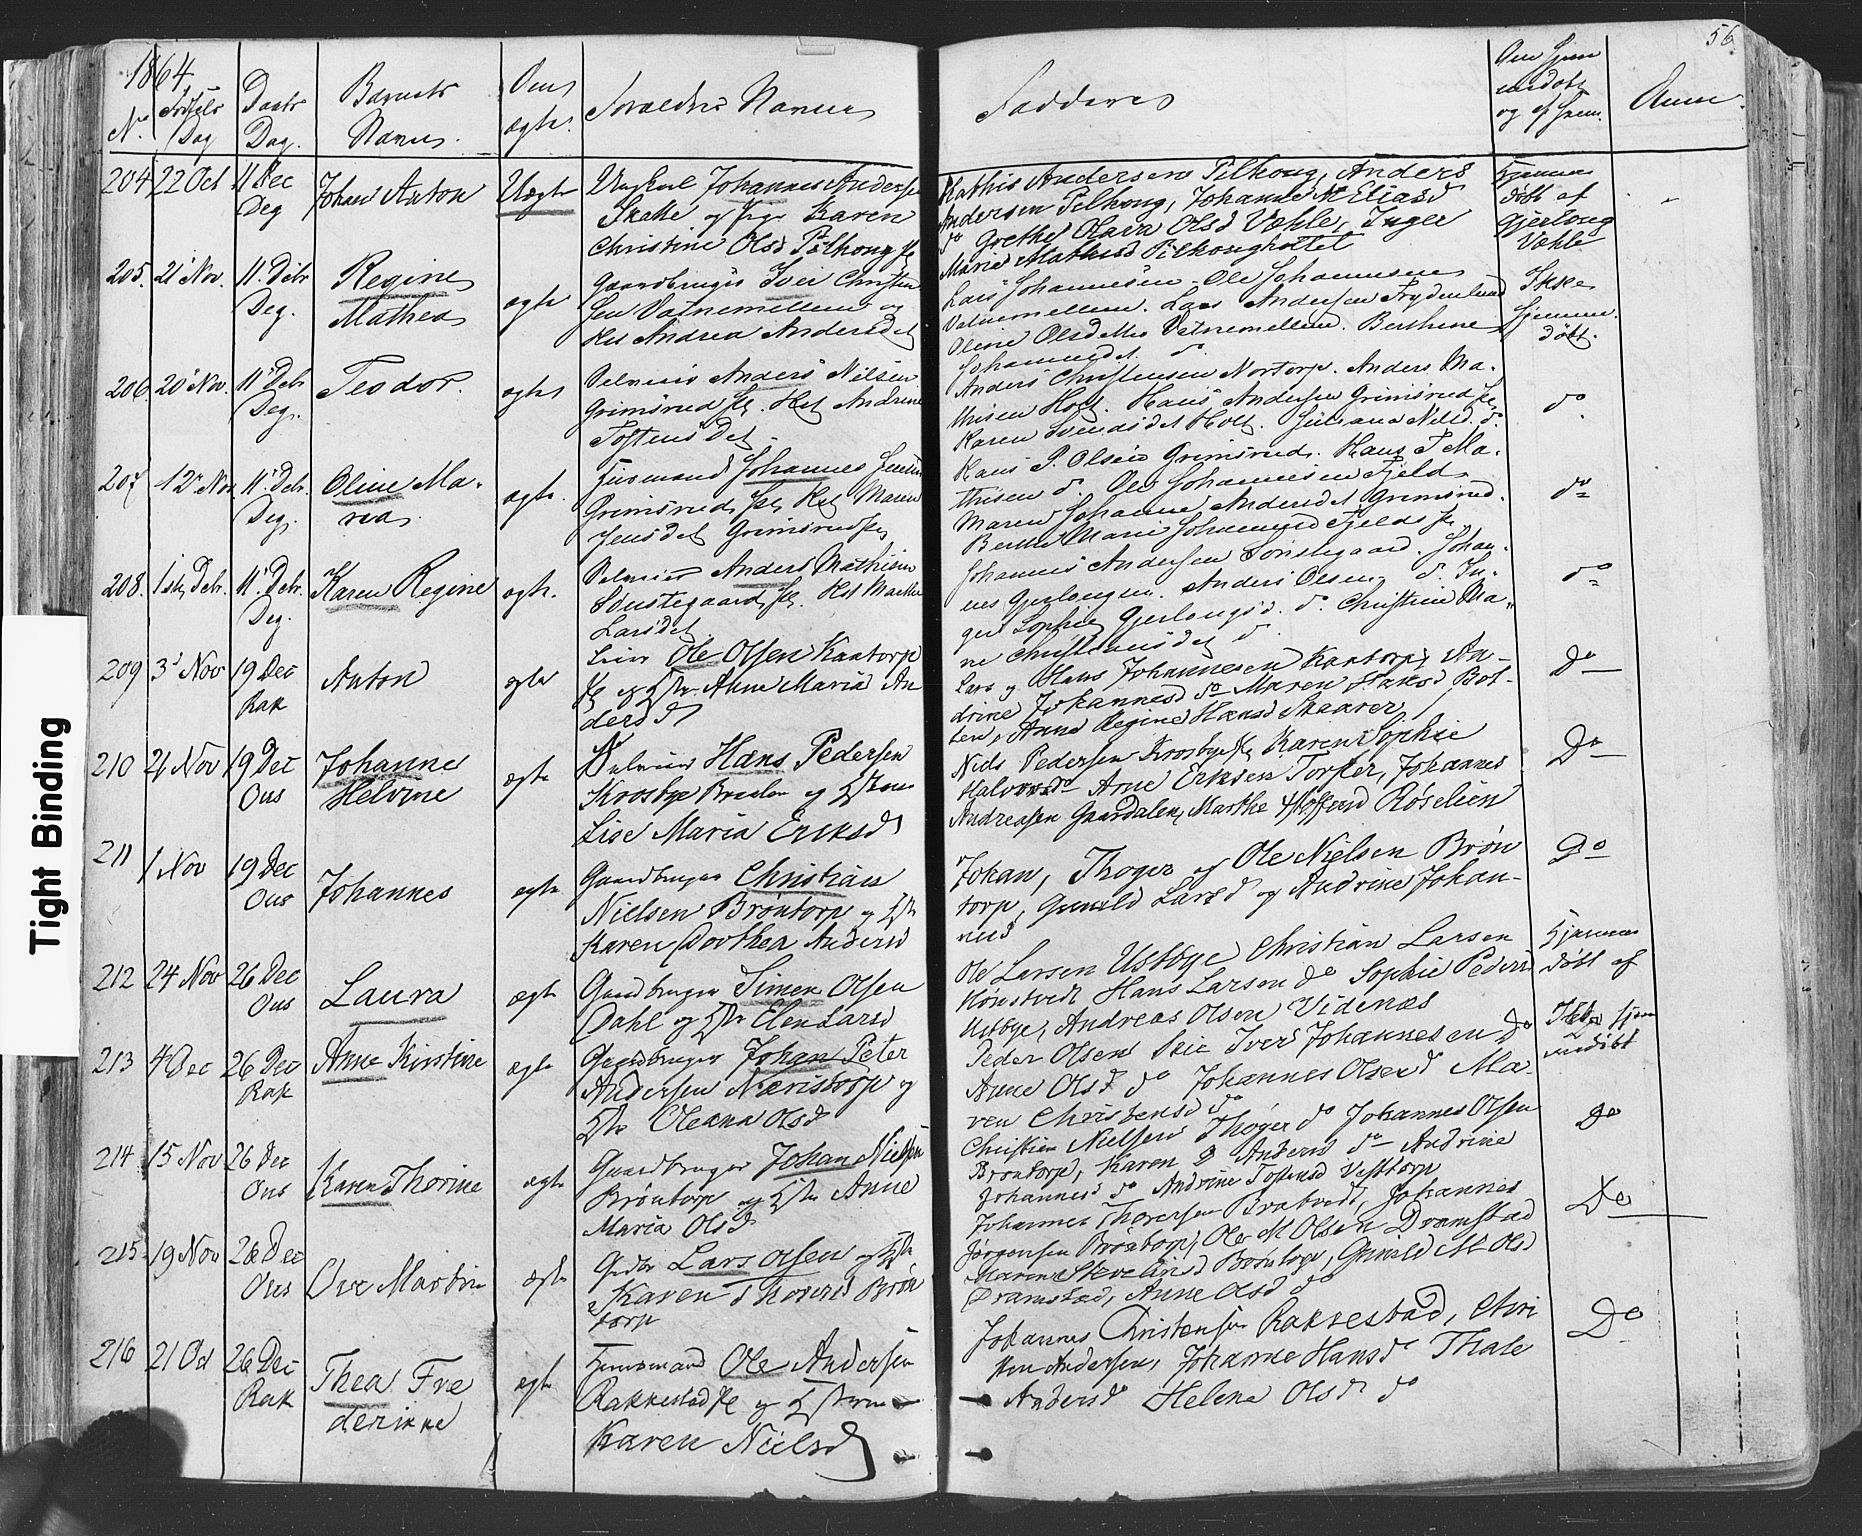 56
1864
No Fødsels Dag Daabs Dag. Barnets Navn. Om ægte. Forældres Navne Faddere Om Hjemmedøbt og af hvem. Anm.
204 22 Oct 11 Dec Deg Johan Anton Uægte
Ungkarl Johannes Anderse
Skakke og Pige Karen
Christine Olsd Pilhoug
Mathis Andersen Pilhoug, Anders
Andersen Pilhoug, Johanne M Eliasd
do Grethe Olava Olsd Væhle, Inger
Marie Mathisd Pilhougholtet
Hjemme
døbt af
Gjerloug
Væhle
205. 21 Nov. 11. Debr Deg. Regine Mathea ægte
Gaardbruger Iver Christen
sen Vatnemellem og
Kst Andrea Andersdet
Lars Johannesen. Ole Johannesen
Vatnemellem. Lars Andersen Frydenlund
Oline Olsdatter Vatnemellem. Berthine
Johannesdet do.
Ikke
hjemme
døbt.
206. 20 Nov. 11 Debr Deg. Teodor. ægte
Selveier Anders Nilsen
Grimsrud. Kst Andrine
Tostensdet.
Anders Christensen Nortorp. Anders Ma-
thisen Holt. Hans Andersen Grimsrud
Karen Svendsdet Holt. Juliana Nilsd. do.
do.
207 12 Nov 11 Debr. Deg. Oline Ma-
ria ægte.
Huusmand Johannes Jensen
Grimsrud Kst Maren
Jensdet Grimsrud
Hans P. Olsen Grimsrud. Hans T Ma-
thisen do Ole Johannesen Fjeld
Maren Johanne Andersdet Grimsrud.
Berthe Marie Johannesd Fjeld
do
208. 1ste Debr. 11 Debr. Deg. Karen Regine ægte.
Selveier Anders Mathisen
Sønstegaard. Kst Marthe
Larsdet
Johannes Andersen Sønstegaard. Johan-
nes Gjerlougen. Anders Olsen do. In-
ger Sophie Gjerlougsd. do. Christine Ma-
rie Christensdet do.
do
209 3 Nov 19 Dec Rak Anton ægte
Leier Ole Olsen Kantorp
og Hstr. Anne Maria An
dersd
Lars og Hans Johannesen Kantorp, An-
drine Johannesd do Maren Hansd Bot-
ten, Anne Regine Hansd Skaarer
Do
210 21 Nov 19 Dec Ous Johanne
Helvine ægte
Selveier Hans Pedersen
Krosbye Breden og Hstru
Lise Maria Eriksd
Niels Pedersen Krosbye, Karen Sophie
Halvorsd Arne Eriksen Torper, Johannes
Andreasen Gaardalen, Marthe Stoffersd Røselien
Do
211 1 Nov 19 Dec Ous Johannes ægte
Gaardbruger Christian
Nielsen Brøntorp og Hstr
Karen Dorthea Andersd
Johan, Thoger og Ole Nielsen Brøn
torp, Gunild Larsd og Andrine Johan-
nesd
Do
212 24 Nov 26 Dec Ous Laura ægte
Gaardbruger Simen Olsen
Dahl og Hstr Elen Larsd
Ole Larsen Ustbye Christian Larsen
Hønstvedt Hans Larsen do Sophie Pedersd
Ustbye, Andreas Olsen Videnæs
Hjemme
døbt af
213 4 Dec 26 Dec Rak Anne Kirstine ægte
Gaardbruger Johan Peter
Andersen Næristorp og
Hstr Oleana Olsd
Peder Olsen Skie Iver Johannesen do
Anne Olsd do Johannes Olsen do Ma-
ren Christensd do
Ikke hjem
medøbt
214 15 Nov 26 Dec Ous Karen Thorine ægte
Gaardbruger Johan Nielsen
Brøntorp og Hstr Anne
Maria Olsd
Christian Nielsen Thoger do Johannes Olsen
Brøntorp, Karen D Andersd do Andrine
Johannesd do Andrine Tostensd Vesttorp
Do
215 19 Nov 26 Dec Ous Ove Martin ægte
Inder Lars Olsen og Hstr
Karen Thoresd Brøn
torp
Johannes Thoresen Bratvedt, Johannes
Jørgensen Brøntorp, Ole M Olsen Dramstad
Maren Brøntorp, Gunild M Olsd
Dramstad, Anne Olsd do
Do
216 21 Oct 26 Dec Rak Thea Fre
derikke ægte
Huusmand Ole Andersen
Rakkestad og Hstru
Karen Nielsd
Johannes Christensen Rakkestad, Chri
sten Andersen, Johanne Hansd Thale
Andersd Helena Olsd do
Do
Tight Binding